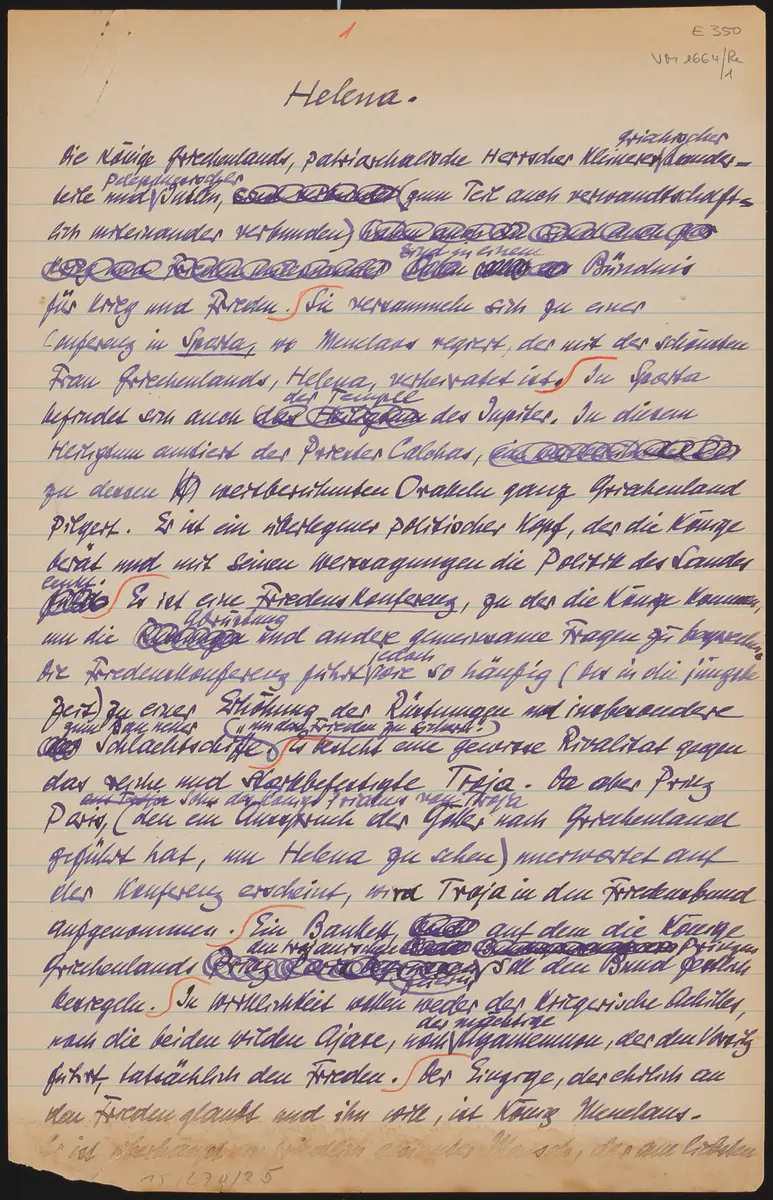 1
E 350
Vtr 1664/Re
1
Helena.
griechischer
Die Könige Griechenlands, patriarchalische Herrscher kleinerer Länder=
peloponnesischer
teile und Inseln, (zum Teil auch verwandtschaft=
lich miteinander verbunden)
sind in einem
Bündnis
für Krieg und Frieden. Sie versammeln sich zu einer
Conferenz in Sparta, wo Menelaus regiert, der mit der schönsten
Frau Griechenlands, Helena, verheiratet ist. In Sparta
der Tempel
befindet sich auch des Jupiter. In diesem
Heiligtum amtiert der Priester Calchas,
zu dessen weltberühmten Orakeln ganz Griechenland
pilgert. Er ist ein überlegener politischer Kopf, der die Könige
berät und mit seinen Weissagungen die Politik des Landes
lenkt.
Es ist eine Friedenskonferenz, zu der die Könige kommen,
Abrüstung
um die und andere gemeinsame Fragen zu besprechen.
jedoch
Die Friedenskonferenz führt wie so häufig (bis in die jüngste
Zeit) zu einer Erhöhung der Rüstungen und insbesondere
zum Bau neuer ("um den Frieden zu sichern!")
Schlachtschiffe. Es besteht eine gewisse Rivalität gegen
das reiche und starkbefestigte Troja. Da aber Prinz
Sohn des Königs Priamus von Troja
Paris, (den ein Ausspruch der Götter nach Griechenland
geführt hat, um Helena zu sehen) unerwartet auf
der Konferenz erscheint, wird Troja in den Friedensbund
aufgenommen. Ein Bankett, auf dem die Könige
den trojanischen Prinzen
Griechenlands soll den Bund festlich
feiern
besiegeln. In Wirklichkeit wollen weder der kriegerische Achilles,
der mächtige
noch die beiden wilden Ajaxe, noch Agamemnon, der den Vorsitz
führt, tatsächlich den Frieden. Der Einzige, der ehrlich an
den Frieden glaubt und ihn will, ist König Menelaus.
ist überhaupt ein Mensch, der am liebsten
15/270/85